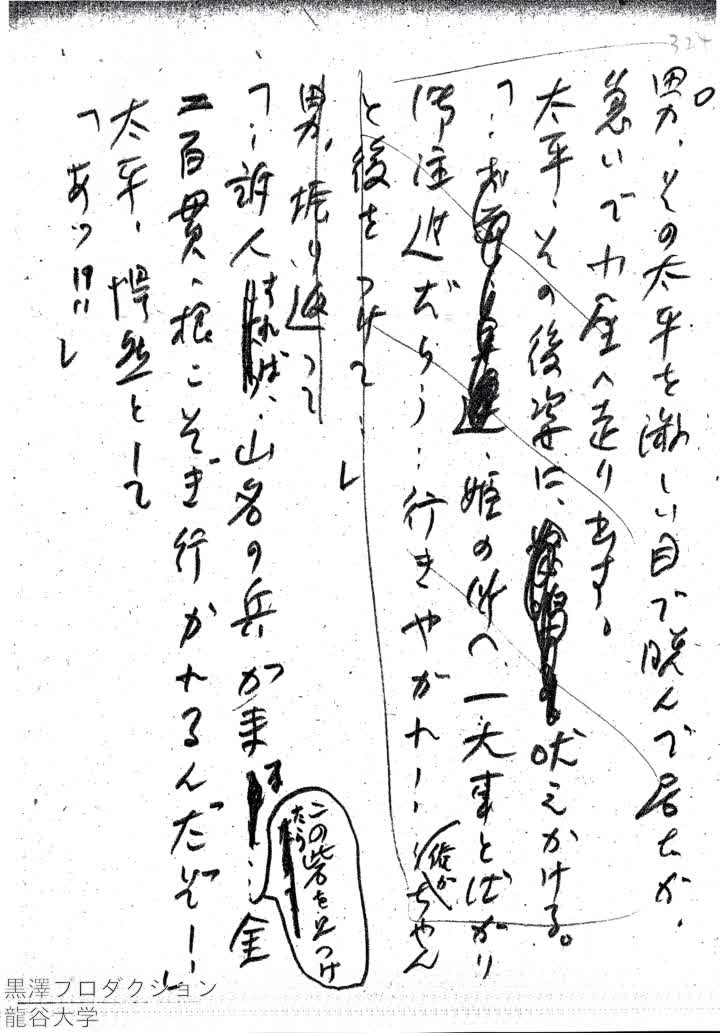 324
男、その太平を激しい目で睨んで居たが、
急いで小屋へ走り出す。
太平、その後姿に、吠えかける。
「‥姫の所へ、一大事とばかり
御注進だらう‥行きやがれ——俺がちやん
と後をつけて‥」
男、振り返つて
「‥訴人すれば、山名の兵が来
この砦を見つけ
たら
金
二百貫、根こそぎ行かれるんだぞ——」
太平、愕然として
「あツ!!」
黒澤プロダクション
龍谷大学